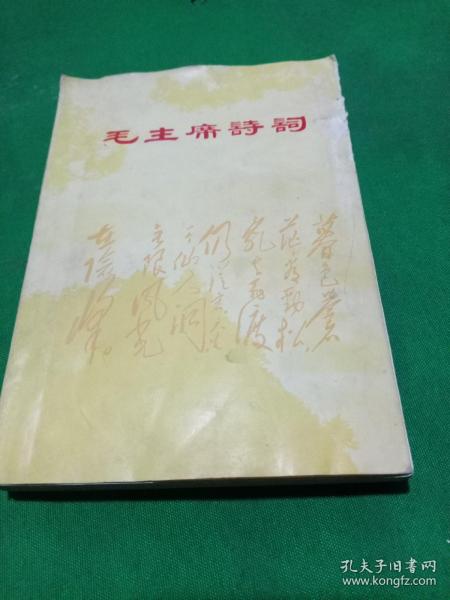 毛主席詩詞
暮色蒼
茫看勁松
亂雲飛渡
仍從容
天生一个
仙人洞
无限風光
在險峰
孔夫子旧书网
www.kongfz.com